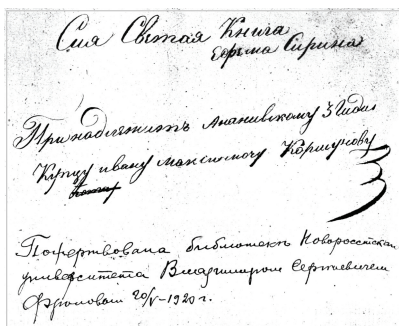 Сия Святая Книга
Ефрема Сирина
Принадлежитъ Ананивскому 3 Гилди
Купцу ивану максимочу Коршунову
Пожертвована библіотекѣ Новороссійскаго
университета Владиміромъ Сергѣевичемъ
Фроловымъ 20/V-1920 г.